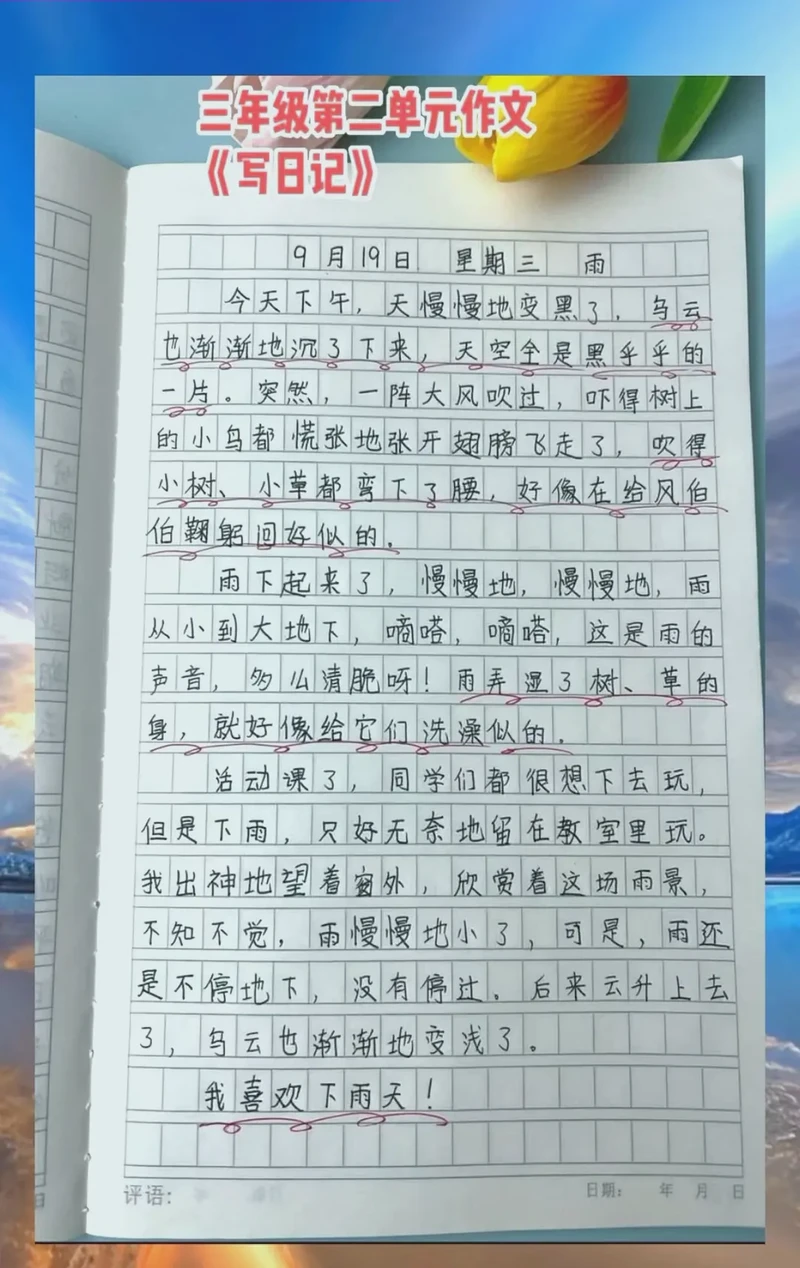 三年级第二单元作文
《写日记》
9月19日 星期三 雨
今天下午，天慢慢地变黑了，乌云
也渐渐地沉了下来，天空全是黑乎乎的
一片。突然，一阵大风吹过，吓得树上
的小鸟都慌张地张开翅膀飞走了，吹得
小树、小草都弯下了腰，好像在给风伯
伯鞠躬问好似的。
雨下起来了，慢慢地，慢慢地，雨
从小到大地下，嘀嗒，嘀嗒，这是雨的
声音，多么清脆呀！雨弄湿了树、草的
身，就好像给它们洗澡似的。
活动课了，同学们都很想下去玩，
但是下雨，只好无奈地留在教室里玩。
我出神地望着窗外，欣赏着这场雨景，
不知不觉，雨慢慢地小了，可是，雨还
是不停地下，没有停过。后来云升上去
了，乌云也渐渐地变浅了。
我喜欢下雨天！
评语：
日期： 年 月 日